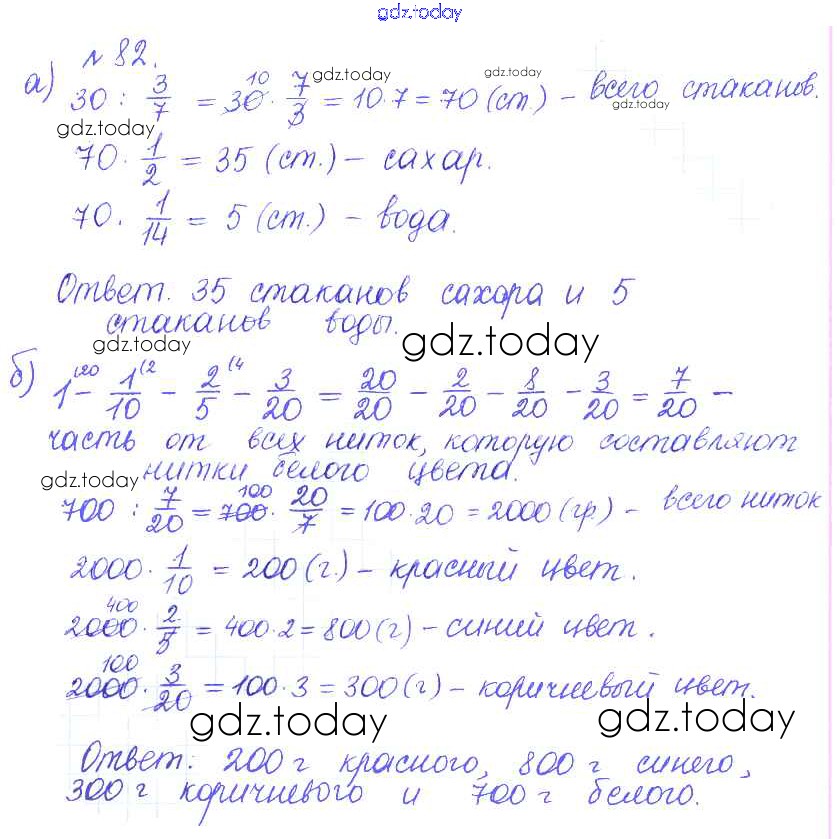 gdz.today
№ 82.
а) 30 : 3/7 = 30 · 7/3 = 10 · 7 = 70 (ст.) – всего стаканов.
10
gdz.today
gdz.today
gdz.today
gdz.today
70 · 1/2 = 35 (ст.) – сахар.
70 · 1/14 = 5 (ст.) – вода.
Ответ. 35 стаканов сахора и 5
стаканов воды.
gdz.today
gdz.today
б) 1 (20 – 1/10 (2 – 2/5 (4 – 3/20 = 20/20 – 2/20 – 8/20 – 3/20 = 7/20 –
часть от всех ниток, которую составляют
нитки белого цвета.
gdz.today
700 : 7/20 = 700 · 20/7 = 100 · 20 = 2000 (гр) – всего ниток
100
2000 · 1/10 = 200 (г.) – красный цвет.
400
2000 · 2/5 = 400 · 2 = 800 (г) – синий цвет.
100
2000 · 3/20 = 100 · 3 = 300 (г) – коричневый цвет.
gdz.today
gdz.today
Ответ: 200 г красного, 800 г синего,
300 г коричневого и 700 г белого.